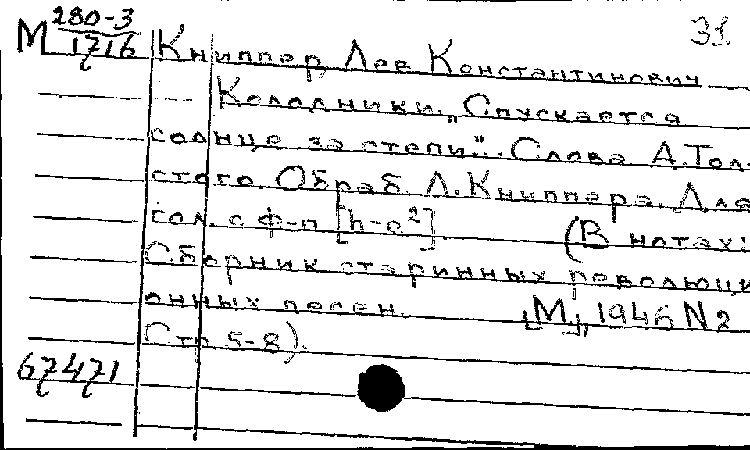 31
М 280-3
1716
Книппер, Лев Константинович
Колодники. „Спускается
солнце за степи". Слова А. Тол-
стого. Обраб. Л. Книппера. Для
гол. с ф-п [h-e²]. (В нотах:
Сборник старинных революци-
онных песен. [М], 1946 N2
Стр 5-8).
67471